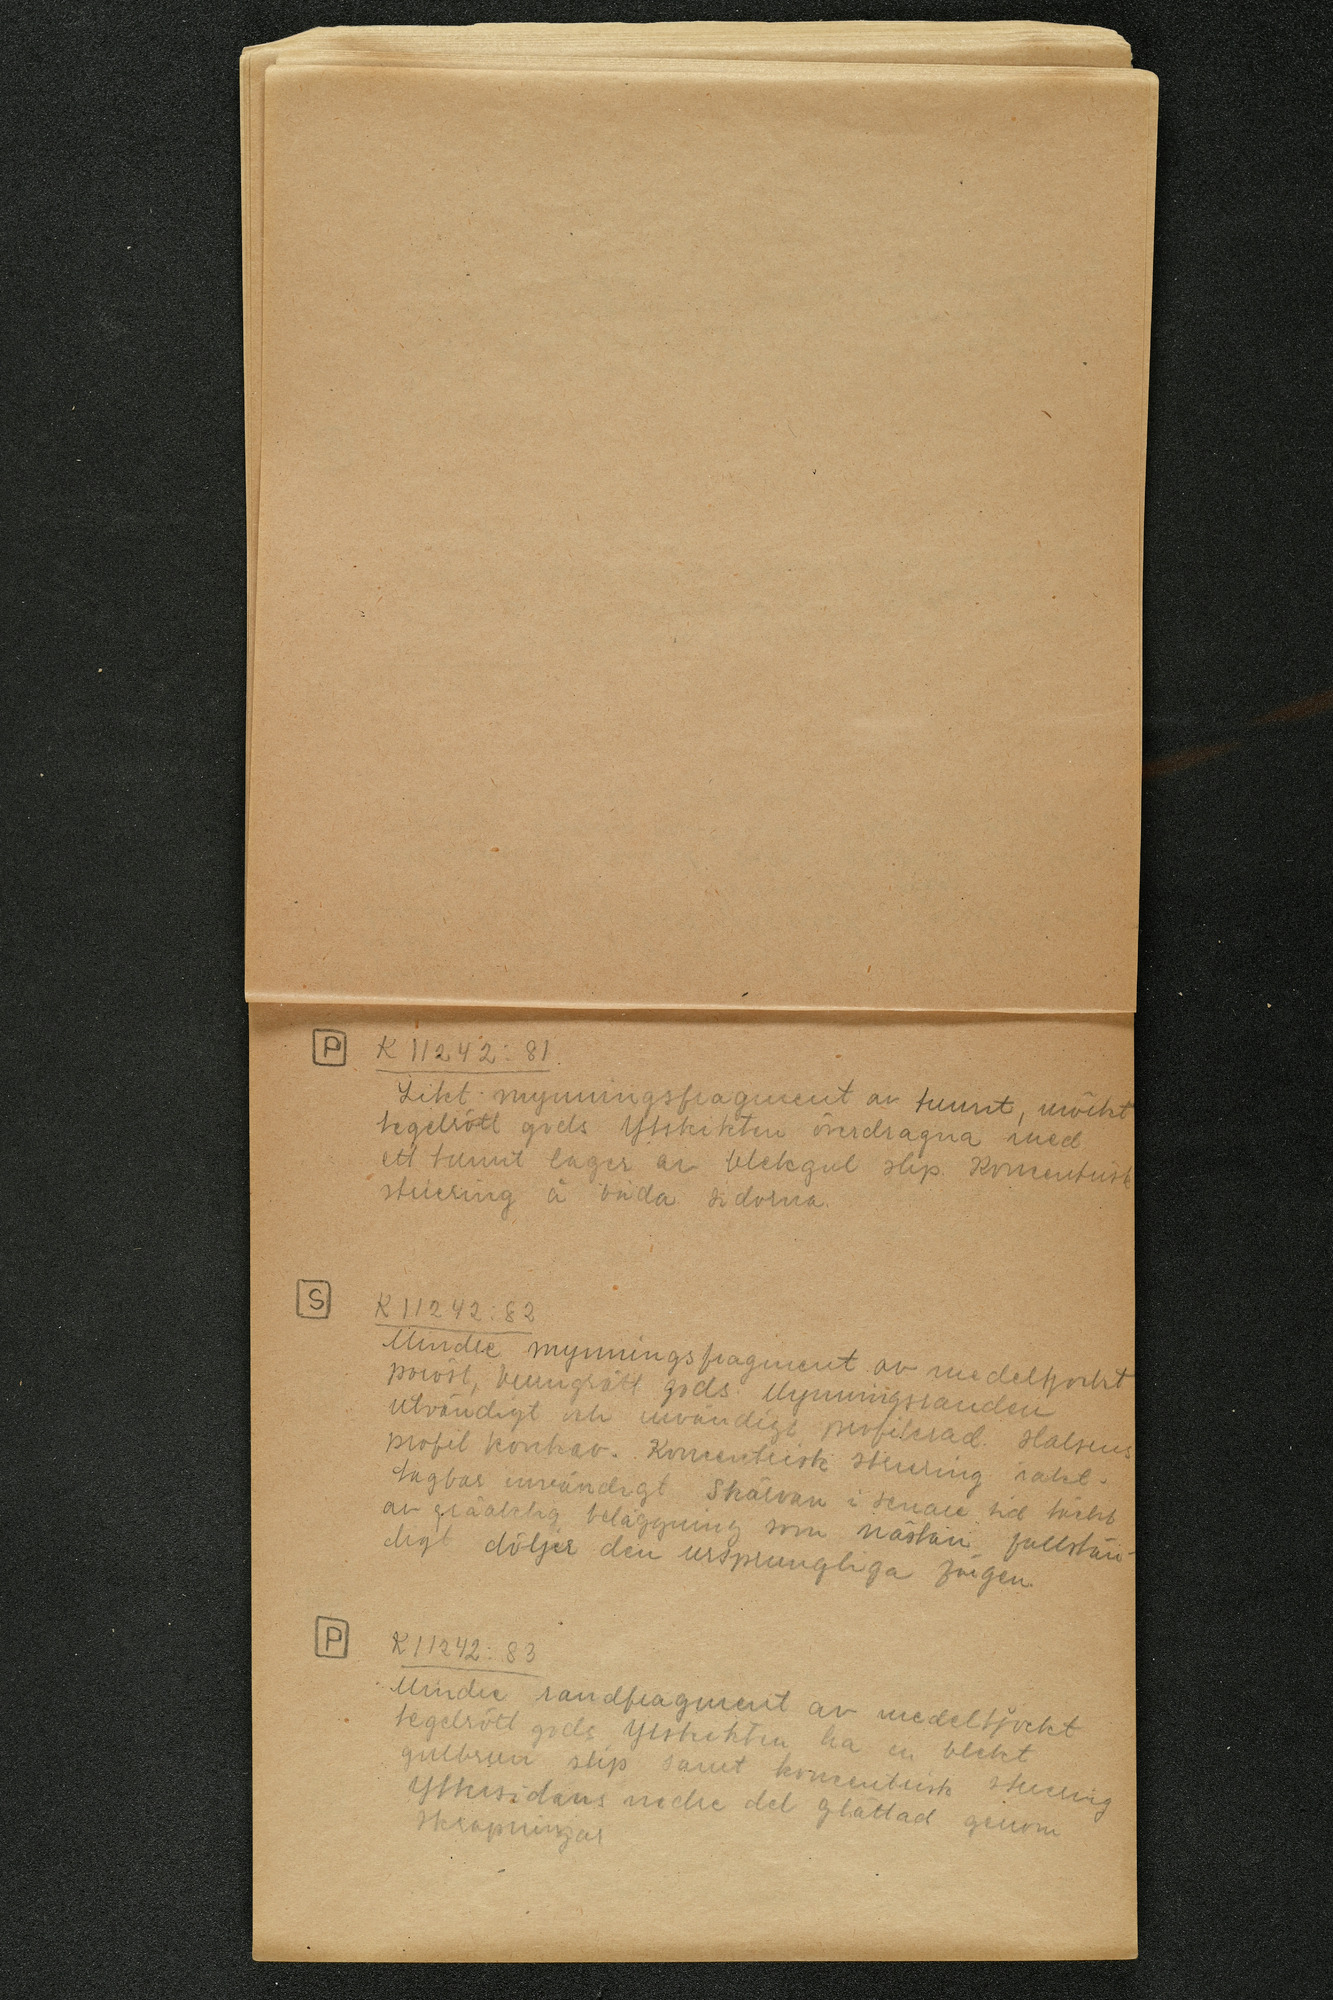 P K 11242:81.
Litet mynningsfragment av tunnt, mörkt
tegelrött gods Ytskikten överdragna med
ett tunnt lager av blekgul slip. Koncentrisk
striering å båda sidorna.
S K 11242:82
Mindre mynningsfragment av medeltjockt
poröst, gods. Mynningsranden
utvändigt och invändigt profilerad. Halsens
profil konkav. Koncentrisk striering iakt-
tagbar invändigt Skärvan i senare tid täckt
av gråaktig beläggning som nästan fullstän-
digt döljer den ursprungliga färgen.
P K 11242:83
Mindre randfragment av medeltjockt
tegelrött gods Ytskikten ha en blekt
gulbrun slip samt koncentrisk striering
Yttersidans nedre del glättad genom
skrapningar